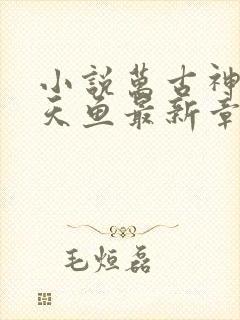 小說萬古神
天魚最新章
毛烜磊